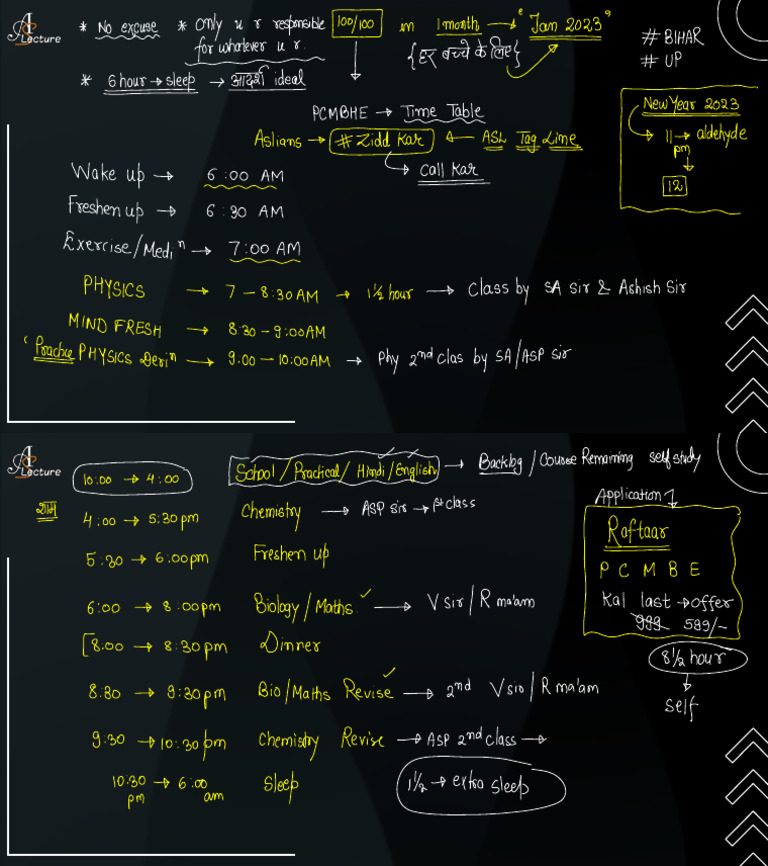 A S Lecture
* No excuse * only u r responsible for whatever u r.
100/100 in 1 month → "Jan 2023"
{हर बच्चे के लिए}
# BIHAR
# UP
* 6 hour → sleep → आदर्श ideal
PCMBHE → Time Table
New Year 2023
11 pm → aldehyde
12
Aslians → # Zidd Kar ← ASL Tag Line
Call Kar
Wake up → 6:00 AM
Freshen up → 6:30 AM
Exercise/Medin → 7:00 AM
PHYSICS → 7 - 8:30 AM → 1½ hour → Class by SA Sir & Ashish Sir
MIND FRESH → 8:30 - 9:00 AM
PHYSICS Derin → 9.00 - 10:00 AM → Phy 2nd clas by SA/ASP sir
Lecture
10:00 → 4:00 School / Practical / Hindi / English → Backlog / Course Remaining self study
शाम
4:00 → 5:30 pm Chemistry → ASP sir → 1st class
Application
Raftaar
P C M B E
Kal last → offer
999 599/-
8½ hour
self
5:30 → 6:00 pm Freshen up
6:00 → 8:00 pm Biology / Maths → V sir / R ma'am
[8.00 → 8:30 pm Dinner
8:30 → 9:30 pm Bio/Maths Revise → 2nd V sir / R ma'am
9:30 → 10:30 pm Chemistry Revise → ASP 2nd class →
10.30 pm → 6:00 am Sleep 1½ → extra sleep